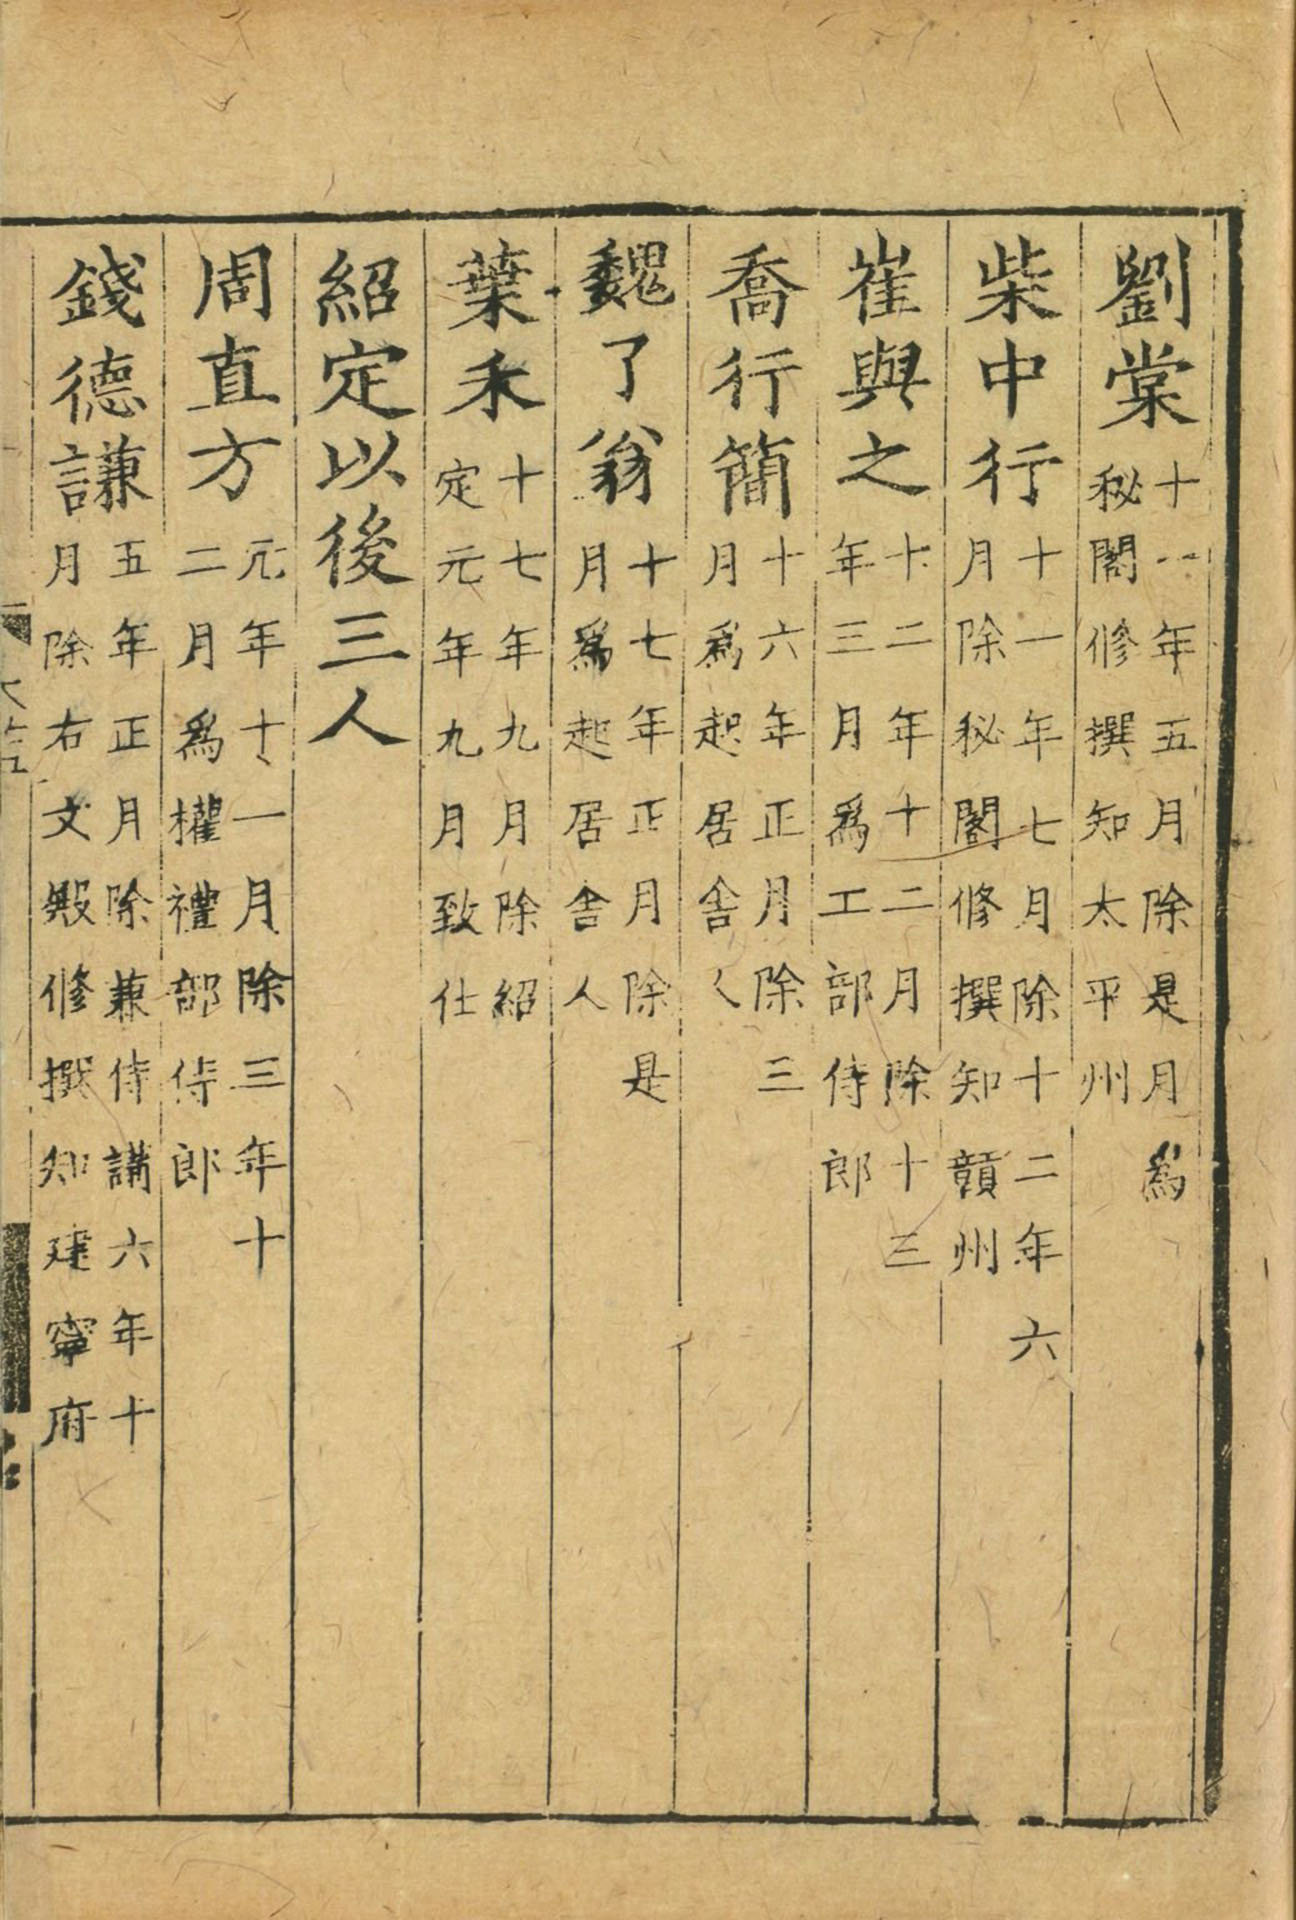 劉棠十一年五月除是月爲秘閣修撰知太平州
柴中行十一年七月除十二年六月除秘閣修撰知贛州
崔與之十二年十二月除十三年三月爲工部侍郎
喬行簡十六年正月除三月爲起居舍人
魏了翁十七年正月除是月爲起居舍人
葉禾十七年九月除紹定元年九月致仕
紹定以後三人
周直方元年十一月除三年十二月爲權禮部侍郎
錢德謙五年正月除兼侍講六年十月除右文殿修撰知建寧府